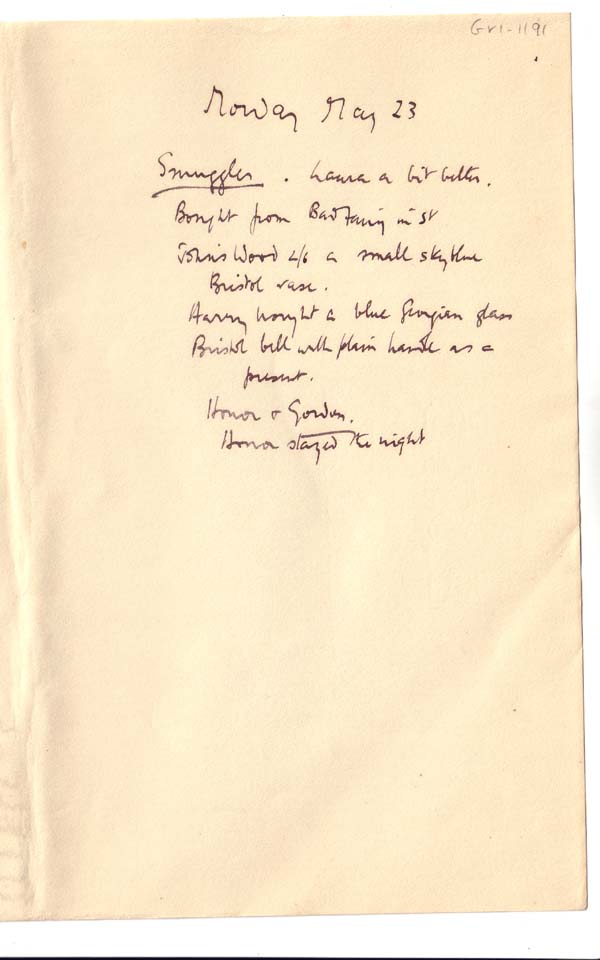 Gr1-1191
Monday May 23
Smuggler. Laura a bit better.
Bought from Bad Fairy in St
John's Wood 2/6 a small sky blue
Bristol vase.
Harry brought a blue Georgian glass
Bristol bell with plain handle as a
present.
Honor & Gordon.
Honor stayed the night